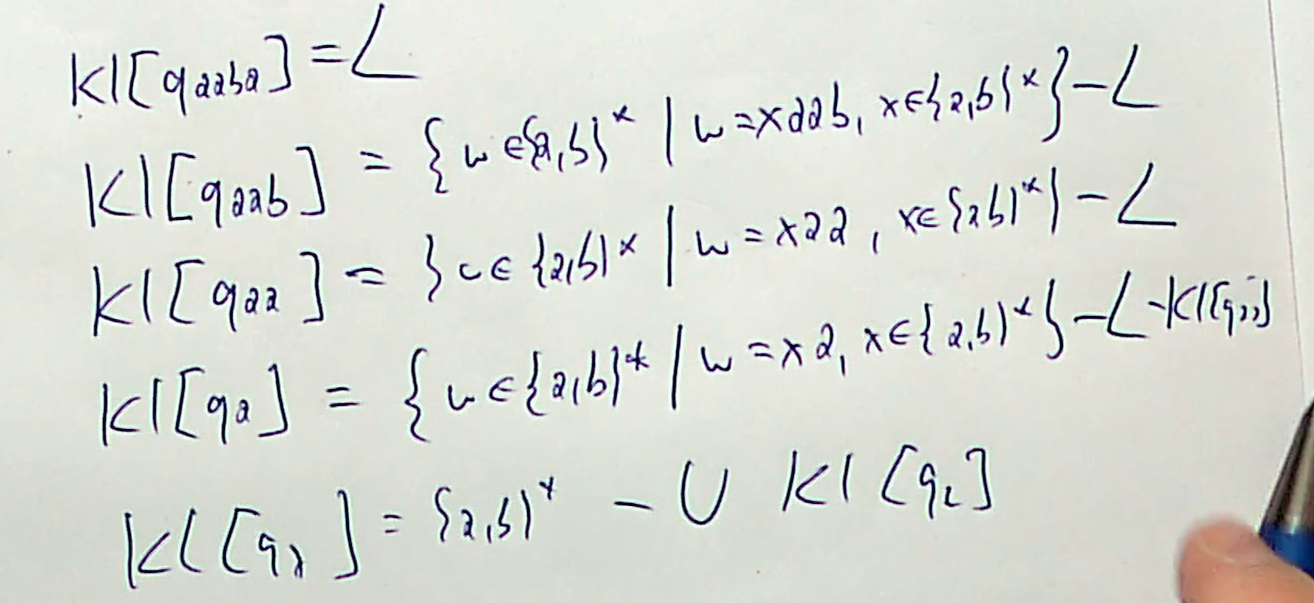 Kl[q_aaba] = L
Kl[q_aab] = {w ∈ {a,b}* | w = xaab, x ∈ {a,b}*} - L
Kl[q_aa] = {w ∈ {a,b}* | w = xaa, x ∈ {a,b}*} - L
Kl[q_a] = {w ∈ {a,b}* | w = xa, x ∈ {a,b}*} - L - Kl[q_aa]
Kl[q_λ] = {a,b}* - ∪ Kl[q_i]